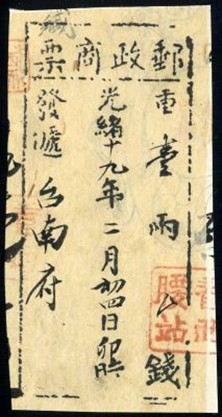 郵政商票
重壹兩八錢
光緒十九年二月初四日
發遞台南府
腰站